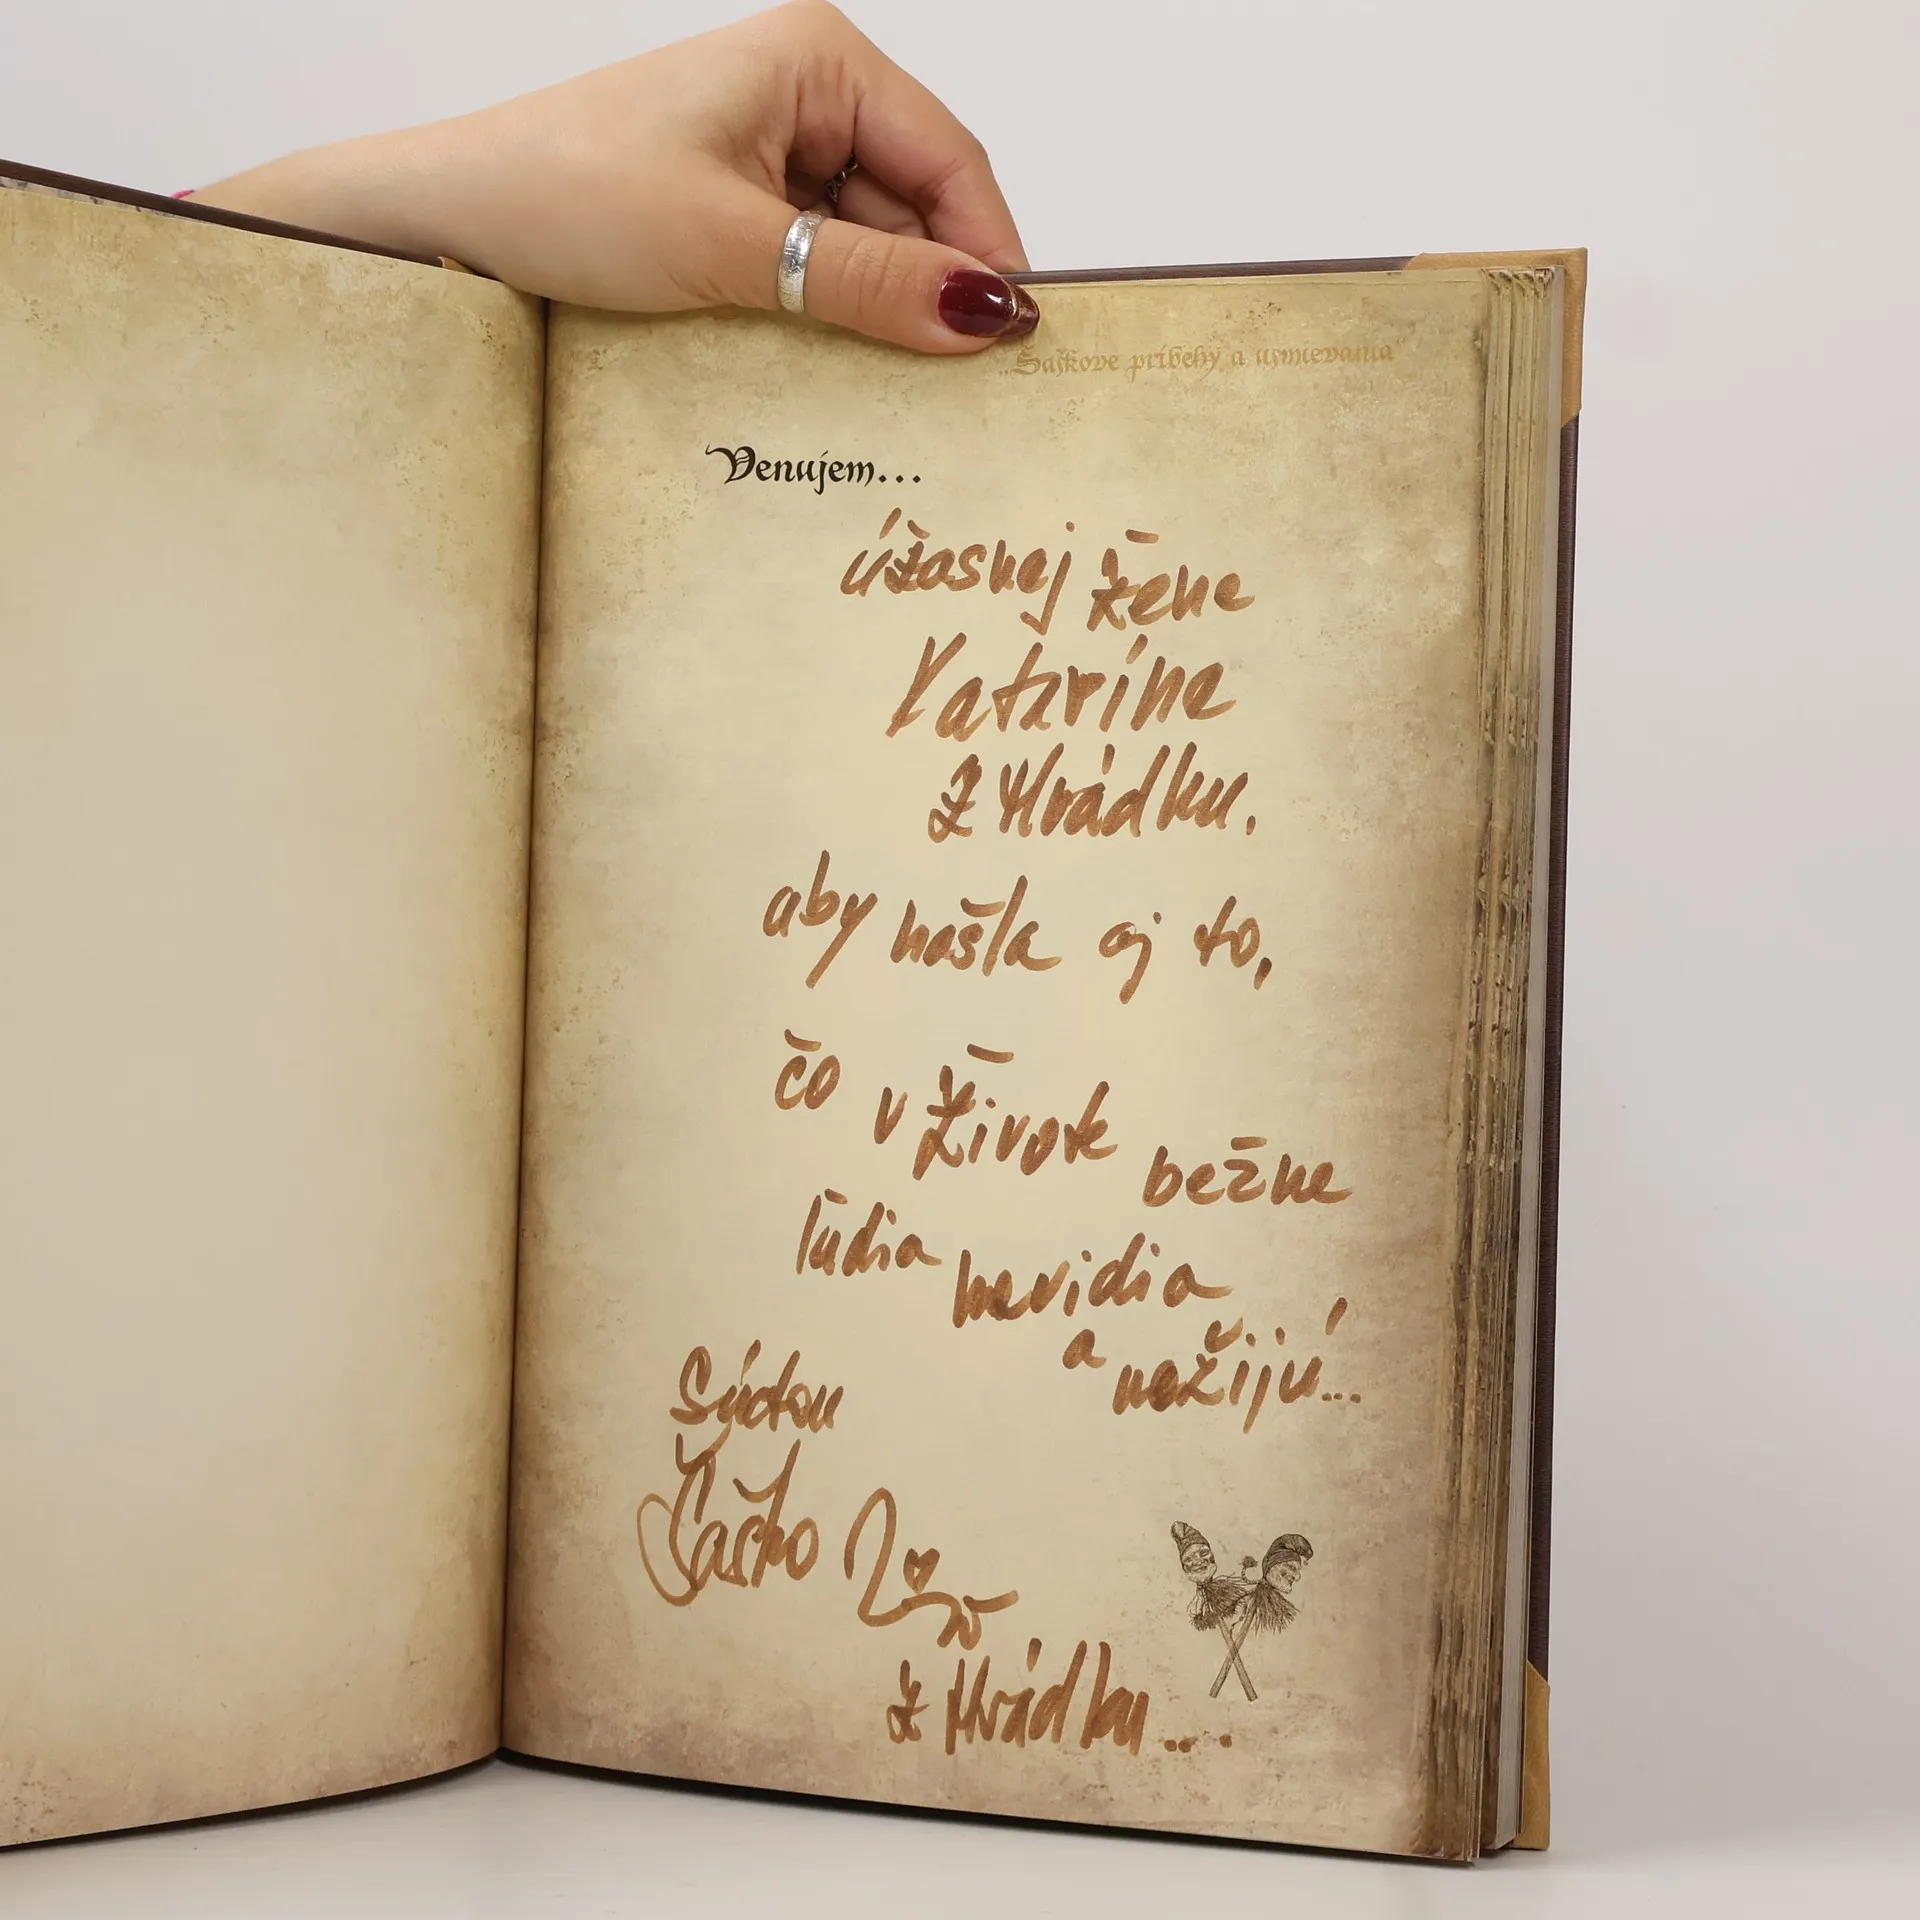 „Šaškove príbehy a usmievania“
Venujem...
úžasnej žene
Kataríne
z Hrádku.
aby našla aj to,
čo v život bežne
ľudia nevidia
a nežijú...
Šaško
z Hrádku...